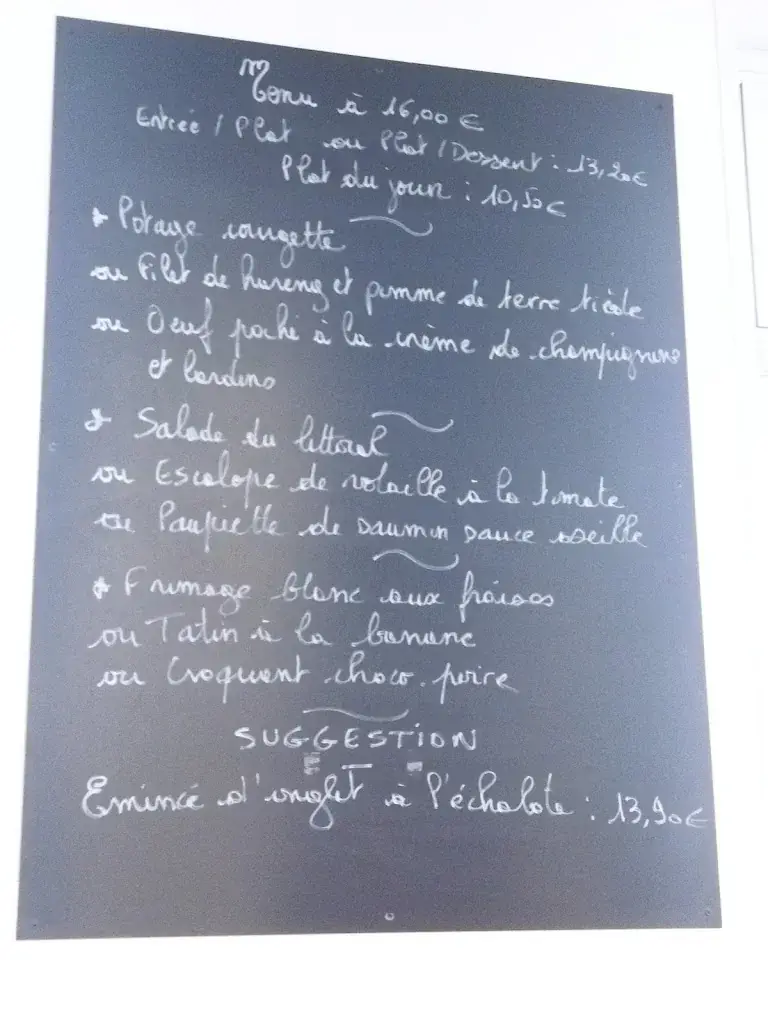 Menu à 16,00 €
Entrée / Plat ou Plat / Dessert : 13,20€
Plat du jour : 10,50€
Potage courgette
ou Filet de hareng et pomme de terre tiède
ou Oeuf poché à la crème de champignons
et lardons
Salade du littoral
ou Escalope de volaille à la tomate
ou Paupiette de saumon sauce oseille
Fromage blanc aux fraises
ou Tatin à la banane
ou Croquant choco-poire
SUGGESTION
Emincé d'onglet à l'échalote : 13,90€